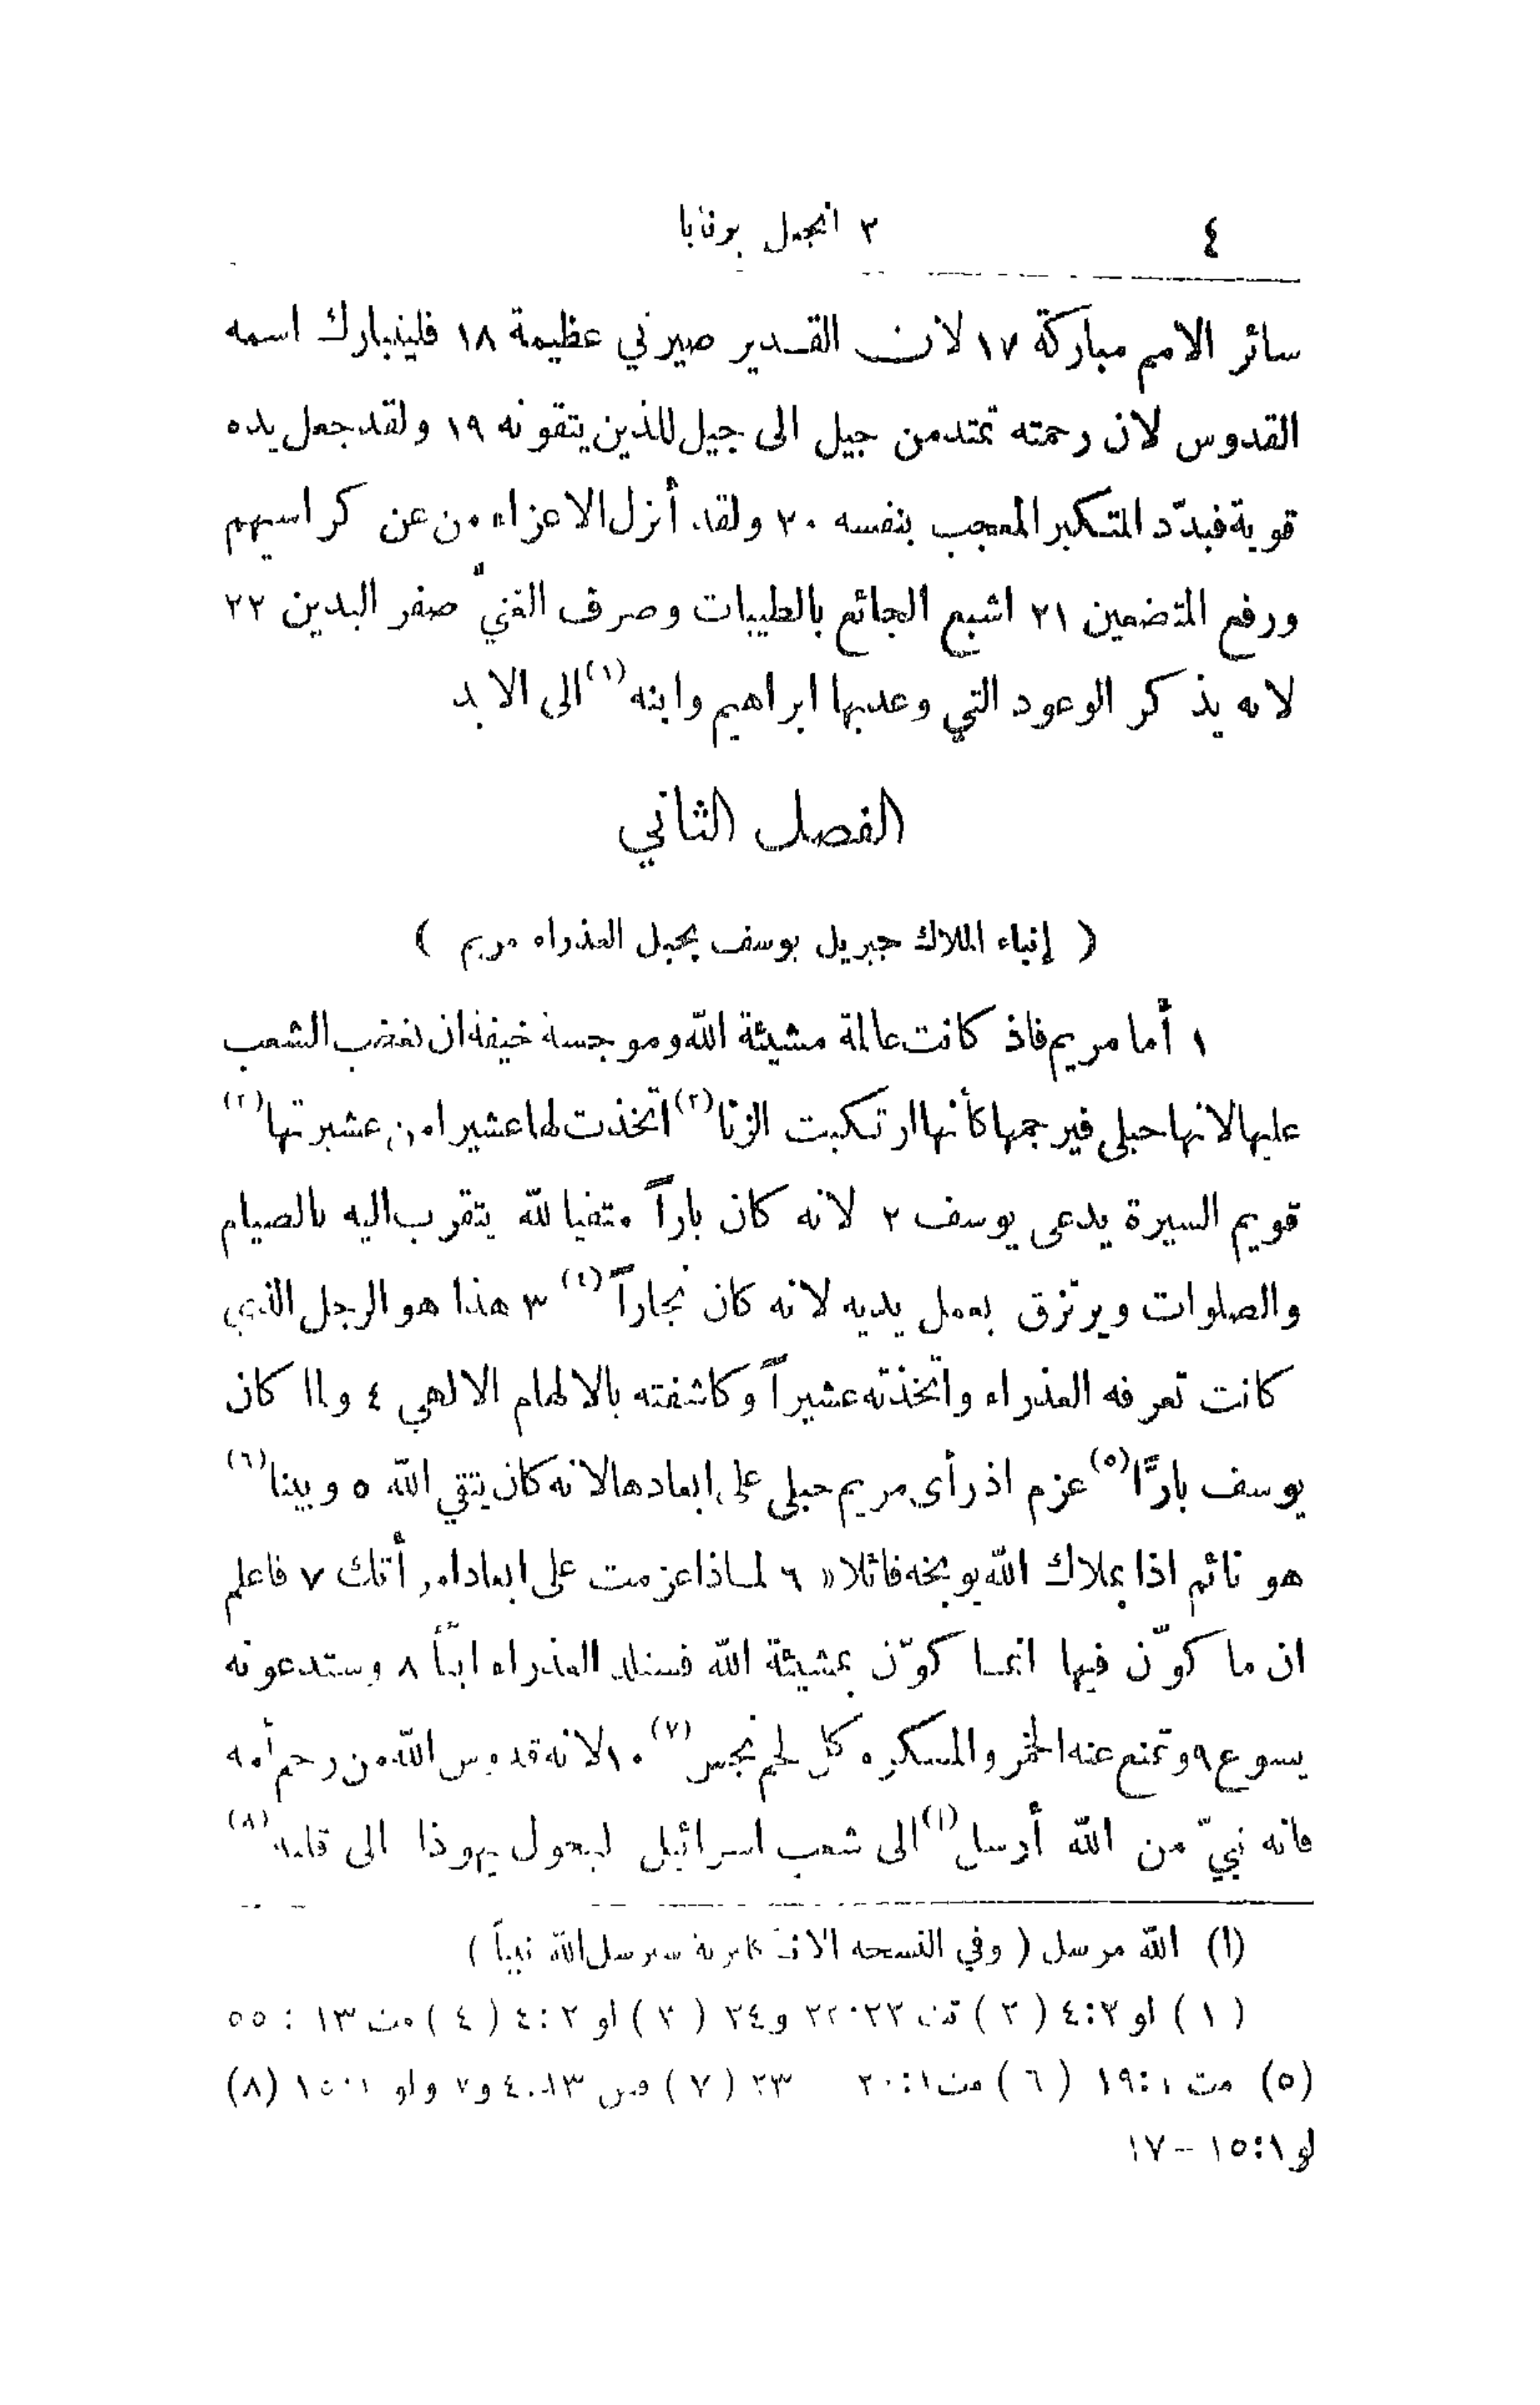 ٤
٣ انجيل برنابا
سائر الامم مباركة ١٧ لان القـدير صيرني عظيمة ١٨ فليتبارك اسمه
القدوس لان رحمته تمتد من جيل الى جيل للذين يتقونه ١٩ ولقد جعل يده
قوية فبدّد المتكبر المعجب بنفسه ٢٠ ولقد أنزل الاعزاء من عن كراسيهم
ورفع المتضعين ٢١ اشبع الجائع بالطيبات وصرف الغنيّ صفر اليدين ٢٢
لانه يذكر الوعود التي وعد بها ابراهيم وابنه (١) الى الابد
الفصل الثاني
( إنباء الملاك جبريل يوسف بحبل العذراء مريم )
١ أما مريم فاذ كانت عالمة مشيئة الله وموجسة خيفة ان يغضب الشعب
عليها لانها حبلى فيرجمها كأنها ارتكبت الزنا (٢) اتخذت لها عشيرا من عشيرتها (٣)
قويم السيرة يدعى يوسف ٢ لانه كان باراً متقيا لله يتقرب اليه بالصيام
والصلوات ويرتزق بعمل يديه لانه كان نجاراً (٤) ٣ هذا هو الرجل الذي
كانت تعرفه العذراء واتخذته عشيراً وكاشفته بالالهام الالهي ٤ ولما كان
يوسف بارًّا (٥) عزم اذ رأى مريم حبلى على ابعادها لانه كان يتقي الله ٥ وبينا (٦)
هو نائم اذا بملاك الله يوبخه قائلا « ٦ لماذا عزمت على ابعاد امرأتك ٧ فاعلم
ان ما كوّن فيها انمـا كوّن بمشيئة الله فستلد العذراء ابناً ٨ وستدعونه
يسوع ٩ وتمنع عنه الخمر والمسكر وكل لحم نجس (٧) ١٠ لانه قدوس الله من رحم أمه
فانه نبيّ من الله أرسل (ا) الى شعب اسرائيل ليحول يهوذا الى قلبه (٨)
(ا) الله مرسل ( وفي النسخة الانكليزية سيرسل الله نبياً )
( ١ ) لو ٤:٢ ( ٢ ) تث ٢٢:٢٣ و٢٤ ( ٣ ) لو ٤:٢ ( ٤ ) مت ١٣ : ٥٥
(٥) مت ١٩:١ ( ٦ ) مت ٢٠:١ ٢٣ ( ٧ ) قض ٤:١٣ و٧ ولو ١٥:١ (٨)
لو ١٥:١ – ١٧